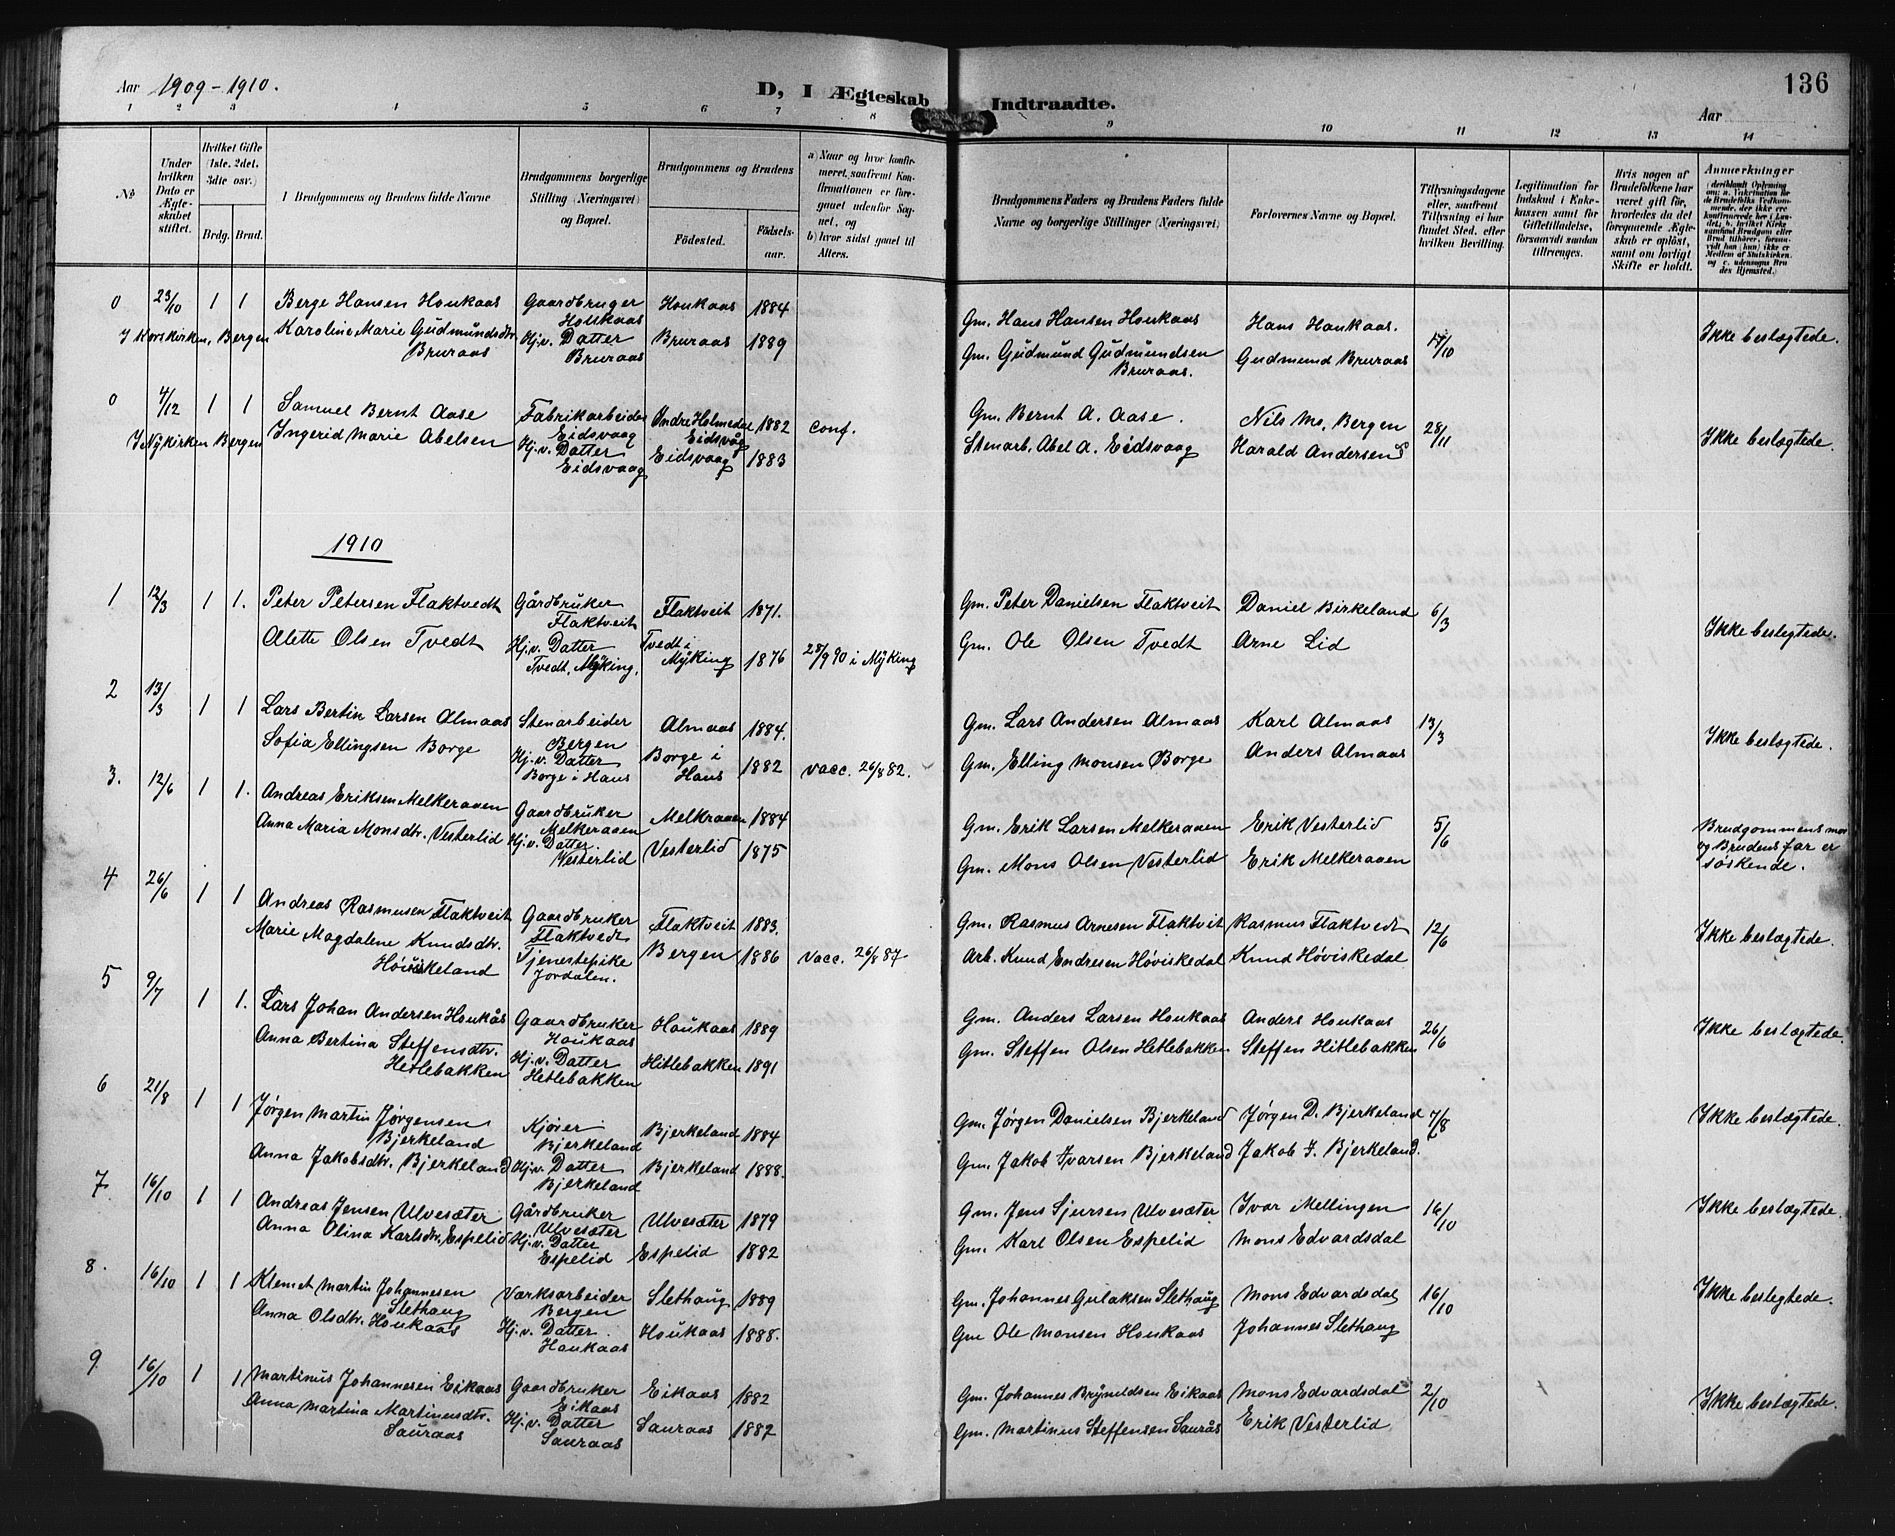 Aar 1909-1910.
D, I Ægteskab Indtraadte.
136
Aar
1 2 3 4 5 6 7 8 9 10 11 12 13 14
No
Under hvilken Dato er Ægteskabet stiftet.
Hvilket Gifte (1ste, 2det, 3die osv.)
Brdg. Brud.
Brudgommens og Brudens fulde Navne
Brudgommens borgerlige Stilling (Næringsvei) og Bopæl.
Brudgommens og Brudens
Födested.
Födselsaar.
a) Naar og hvor konfirmeret, saafremt Konfirmationen er foregaaet udenfor Sognet, og
b) hvor sidst gaaet til Alters.
Brudgommens Faders og Brudens Faders fulde Navne og borgerlige Stillinger (Næringsvei)
Forlovernes Navne og Bopæl.
Tillysningsdagene eller, saafremt Tillysning ei har fundet Sted, efter hvilken Bevilling.
Legitimation for Indskud i Enkekassen samt for Giftetilladelse, forsaavidt saadan tiltrænges.
Hvis nogen af Brudefolkene har været gift før, hvorledes da det foregaaende Ægteskab er opløst, samt om lovligt Skifte er holdt.
Anmærkninger
0 23/10 1 1 Berge Hansen Houkaas Gaardbruger Houkaas Houkaas 1884 Gm. Hans Hansen Houkaas Hans Houkaas. 17/10 Ikke beslægtede.
I Korskirken, Bergen Karoline Marie Gudmundsdtr. Bruraas Hj.v. Datter Bruraas Bruraas 1889 Gm. Gudmund Gudmundsen Bruraas. Gudmund Bruraas
0 4/12 1 1 Samuel Bernt Aase Fabrikarbeider Eidsvaag Indre Holmedal Eidsvåg 1882 conf. Gm. Bernt A. Aase. Nils Ms. Bergen 28/11 Ikke beslegtede
I Nykirken Bergen Ingerid Marie Abelsen Hj.v. Datter Eidsvaag Eidsvaag 1883 Stenarb. Abel A. Eidsvaag Harald Andersen
1910
1 12/3 1 1. Peter Petersen Flaktvedt Gårdbruker Flaktveit Flaktveit 1871. Gm. Peter Danielsen Flaktveit Daniel Birkeland 6/3 Ikke beslegtede.
Alette Olsen Tvedt Hj.v. Datter Tvedt, Myking. Tvedt i Myking 1876 28/9 90 i Myking Gm. Ole Olsen Tvedt Arne Lid
2 13/3 1 1 Lars Bertin Larsen Almaas Stenarbeider Bergen Almaas 1884. Gm. Lars Andersen Almaas Karl Almaas 13/3 Ikke beslægtede.
Sofia Ellingsen Borge Hj.v. Datter Borge i Haus Borge i Haus 1882 vacc. 26/8 82. Gm. Elling Monsen Borge Anders Almaas
3. 12/6 1 1. Andreas Eriksen Melkeraaen Gaardbruker Melkeraaen Melkraaen 1884 Gm. Erik Larsen Melkeraaen Erik Vesterlid 5/6 Brudgommens mor og Brudens far er søskende.
Anna Maria Monsdtr. Vesterlid Hj.v. Datter. Vesterlid Vesterlid 1875 Gm. Mons Olsen Vesterlid Erik Melkeraaen
4 26/6 1 1 Andreas Rasmusen Flaktveit Gaardbruker Flaktvedt Flaktveit 1883. Gm. Rasmus Arnesen Flaktveit Rasmus Flaktvedt 12/6 Ikke beslægtede.
Marie Magdalene Knudsdtr. Høviskeland Tjenestepike Jordalen. Bergen 1886 vacc. 26/8 87. Arb. Knud Endresen Høviskedal Knud Høviskedal
5 9/7 1 1. Lars Johan Andersen Houkås Gaardbruker Houkaas Houkaas 1889 Gm. Anders Larsen Houkaas Anders Houkaas 26/6 Ikke beslægtede.
Anna Bertina Steffensdtr. Hetlebakken Hj.v. Datter Hetlebakken Hitlebakken 1891 Gm. Steffen Olsen Hetlebakken Steffen Hitlebakken
6 21/8 1 1 Jørgen Martin Jørgensen Bjerkeland Kjøier Bjerkeland Bjerkeland 1884 Gm. Jørgen Danielsen Bjerkeland Jørgen D. Bjerkeland 7/8 Ikke beslægtede.
Anna Jakobsdtr. Bjerkeland Hj.v. Datter Bjerkeland Bjerkeland 1888. Gm. Jakob Ivarsen Bjerkeland Jakob I. Bjerkeland.
7. 16/10 1 1 Andreas Jensen Ulvesæter Gårdbruker Ulvesæter Ulvesæter 1879 Gm. Jens Sjursen Ulvesæter Ivar Mellingen 16/10 Ikke beslægtede.
Anna Olina Karlsdtr. Espelid Hj.v. Datter Espelid Espelid 1882 Gm. Karl Olsen Espelid Mons Edvardsdal
8. 16/10 1 1 Klemet Martin Johannesen Slethaug Værksarbeider Bergen Slethaug 1889 Gm. Johannes Gulaksen Slethaug Mons Edvardsdal 16/10 Ikke beslegtede.
Anna Olsdtr. Houkaas Hj.v. Datter. Houkaas Houkaas 1888. Gm Ole Monsen Houkaas Johannes Slethaug
9 16/10 1 1 Martinus Johannesen Eikaas Gaardbruker Eikaas Eikaas 1882 Gm. Johannes Brynildsen Eikaas Mons Edvardsdal 2/10 Ikke beslægtede.
Anna Martina Martinusdtr. Sauraas Hj.v. Datter Sauraas Sauraas 1882 Gm. Martinus Steffensen Saurås Erik Vesterlid